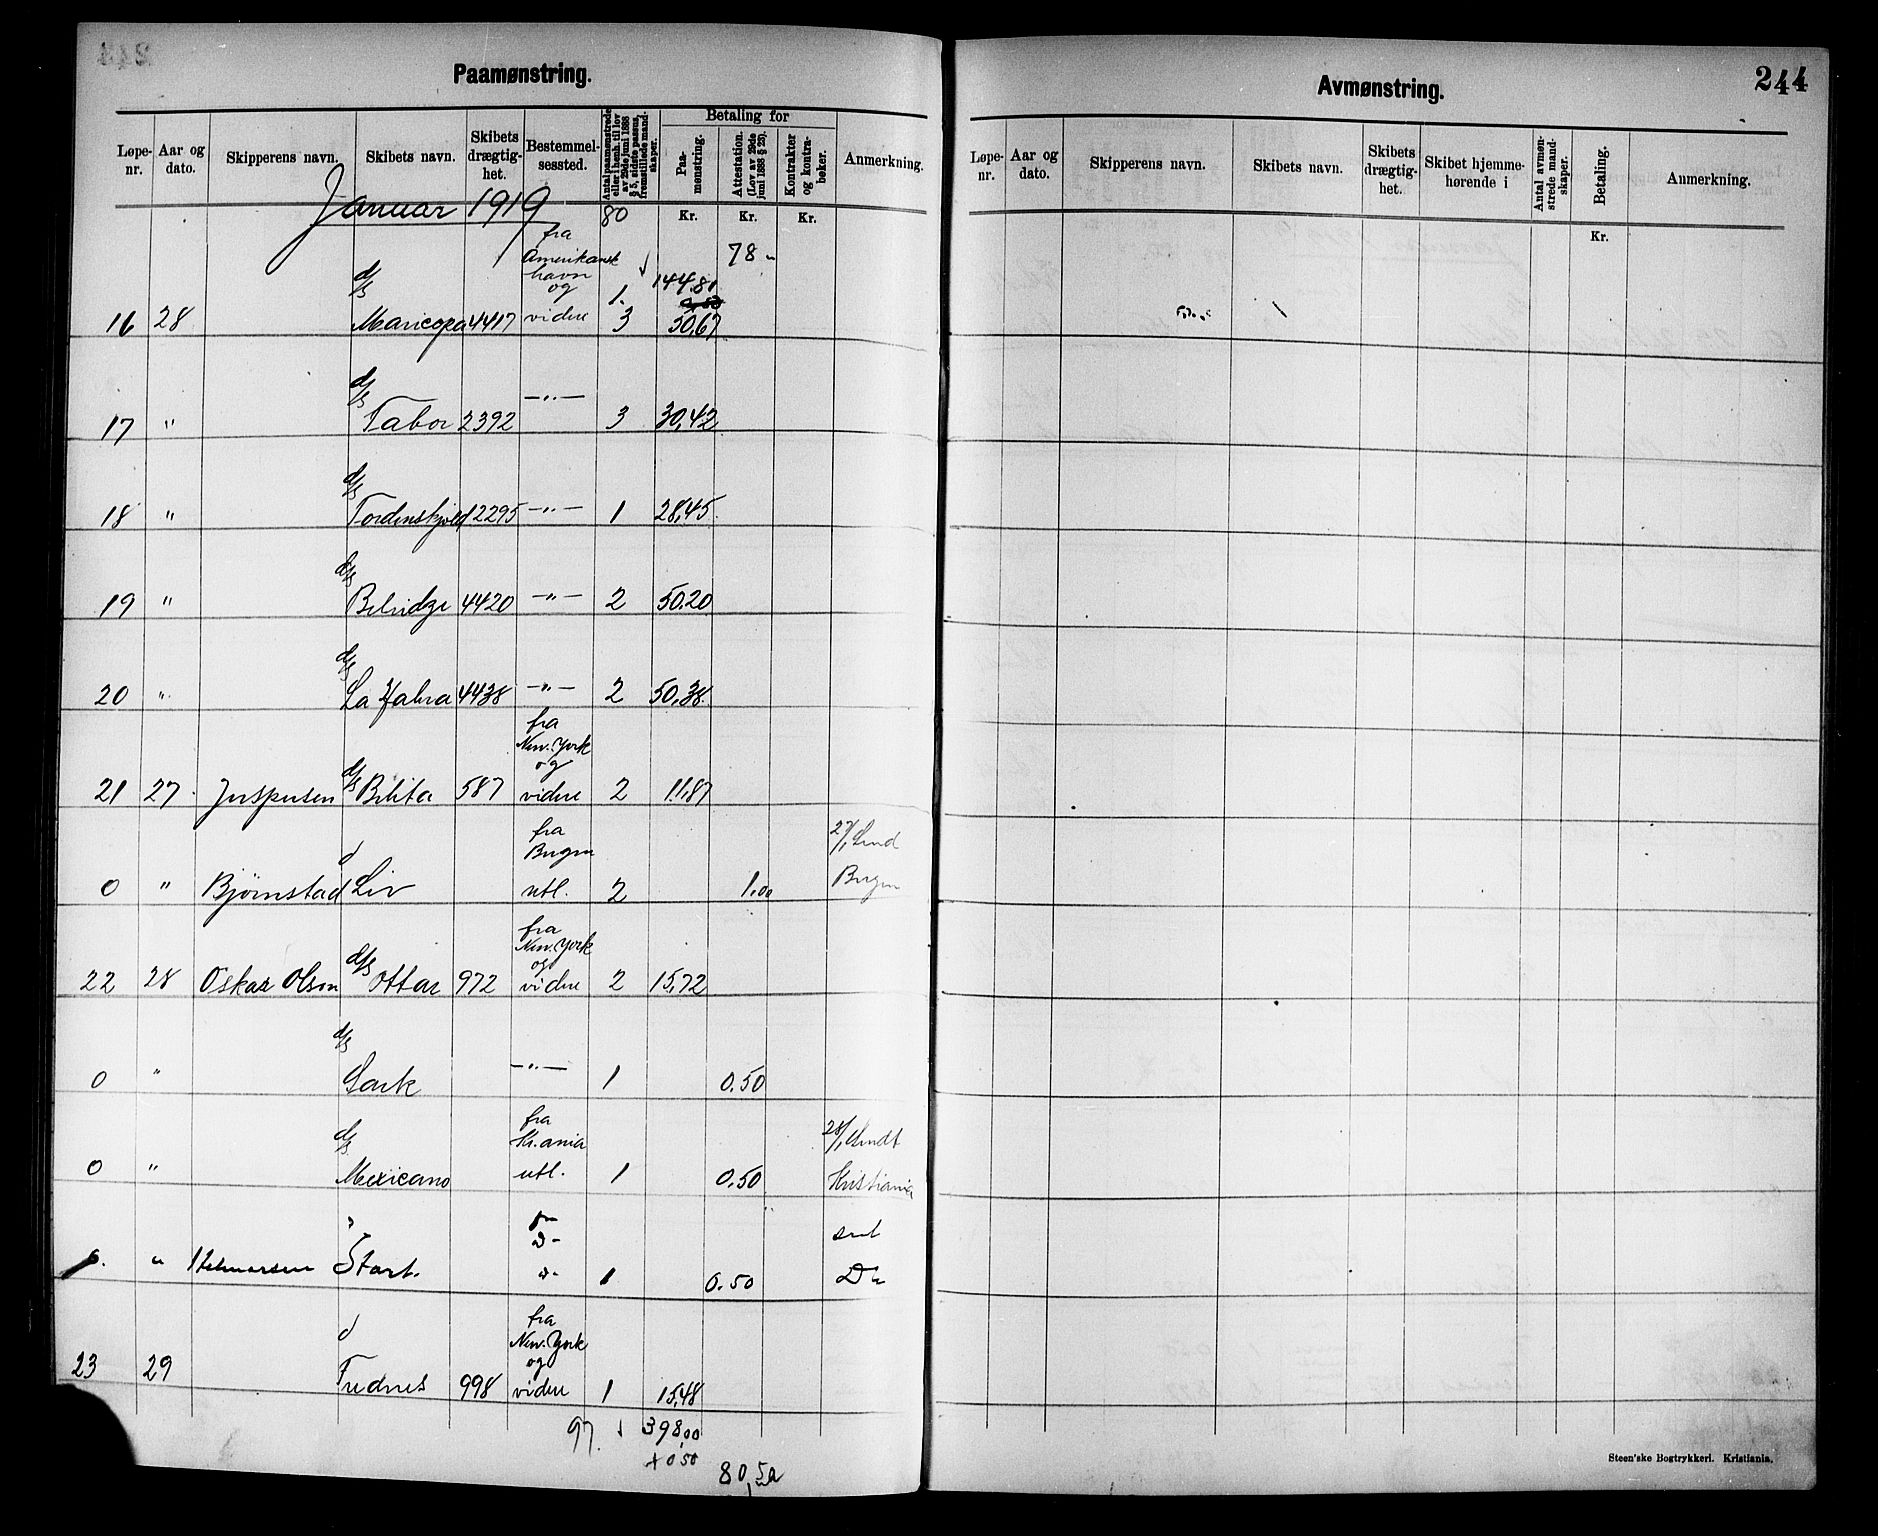 Paamønstring.
Løpe-nr. Aar og dato. Skipperens navn. Skibets navn. Skibets drægtig-het. Bestemmel-sessted. Antal paamønstrede eller i henh. til lov av 29de juni 1888 § 5, sidste passus, fremstillede mand-skaper. Betaling for Paa-mønstring. Attestation. (Lov av 29de juni 1888 § 25). Kontrakter og kontra-bøker. Anmerkning.
Januar 1919 80 Kr. Kr. Kr.
fra
Amerikansk 78 "
havn
og 1. 144.81
16 28 d/s Maricopa 4417 videre 3 50,67
17 " d/s Tabor 2392 —"— 3 30,42
18 " d/s Tordenskjold 2295 —"— 1 28,45
19 " d/s Belridge 4420 —"— 2 50,20
20 " d/s La Habra 4438 —"— 2 50,38
fra
New. York
og
21 27 Jespersen d/s Belita 587 videre 2 11,87
fra 27/1 Send
Bergen
0 " Bjørnstad d Liv utl. 2 1,00 Bergen
fra
New. York
og
22 28 Oskar Olsen d/s Ottar 972 videre 2 15,72
0 " d/s Sark —"— 1 0.50
fra
Kr.ania 28/1 Sendt
0 " d/s Mexicano utl. 1 0,50 Kristiania
D- snt
0. " Helmersen " Start. D- 1 0.50 Do
fra
New. York
og
23 29 d Frednes 998 videre 1 15,48
97. 398,00
+ 0 50
80,50
Avmønstring.
244
Løpe-nr. Aar og dato. Skipperens navn. Skibets navn. Skibets drægtig-het. Skibet hjemme-hørende i Antal avmøn-strede mand-skaper. Betaling. Anmerkning.
Kr.
Steen'ske Bogtrykkeri. Kristiania.